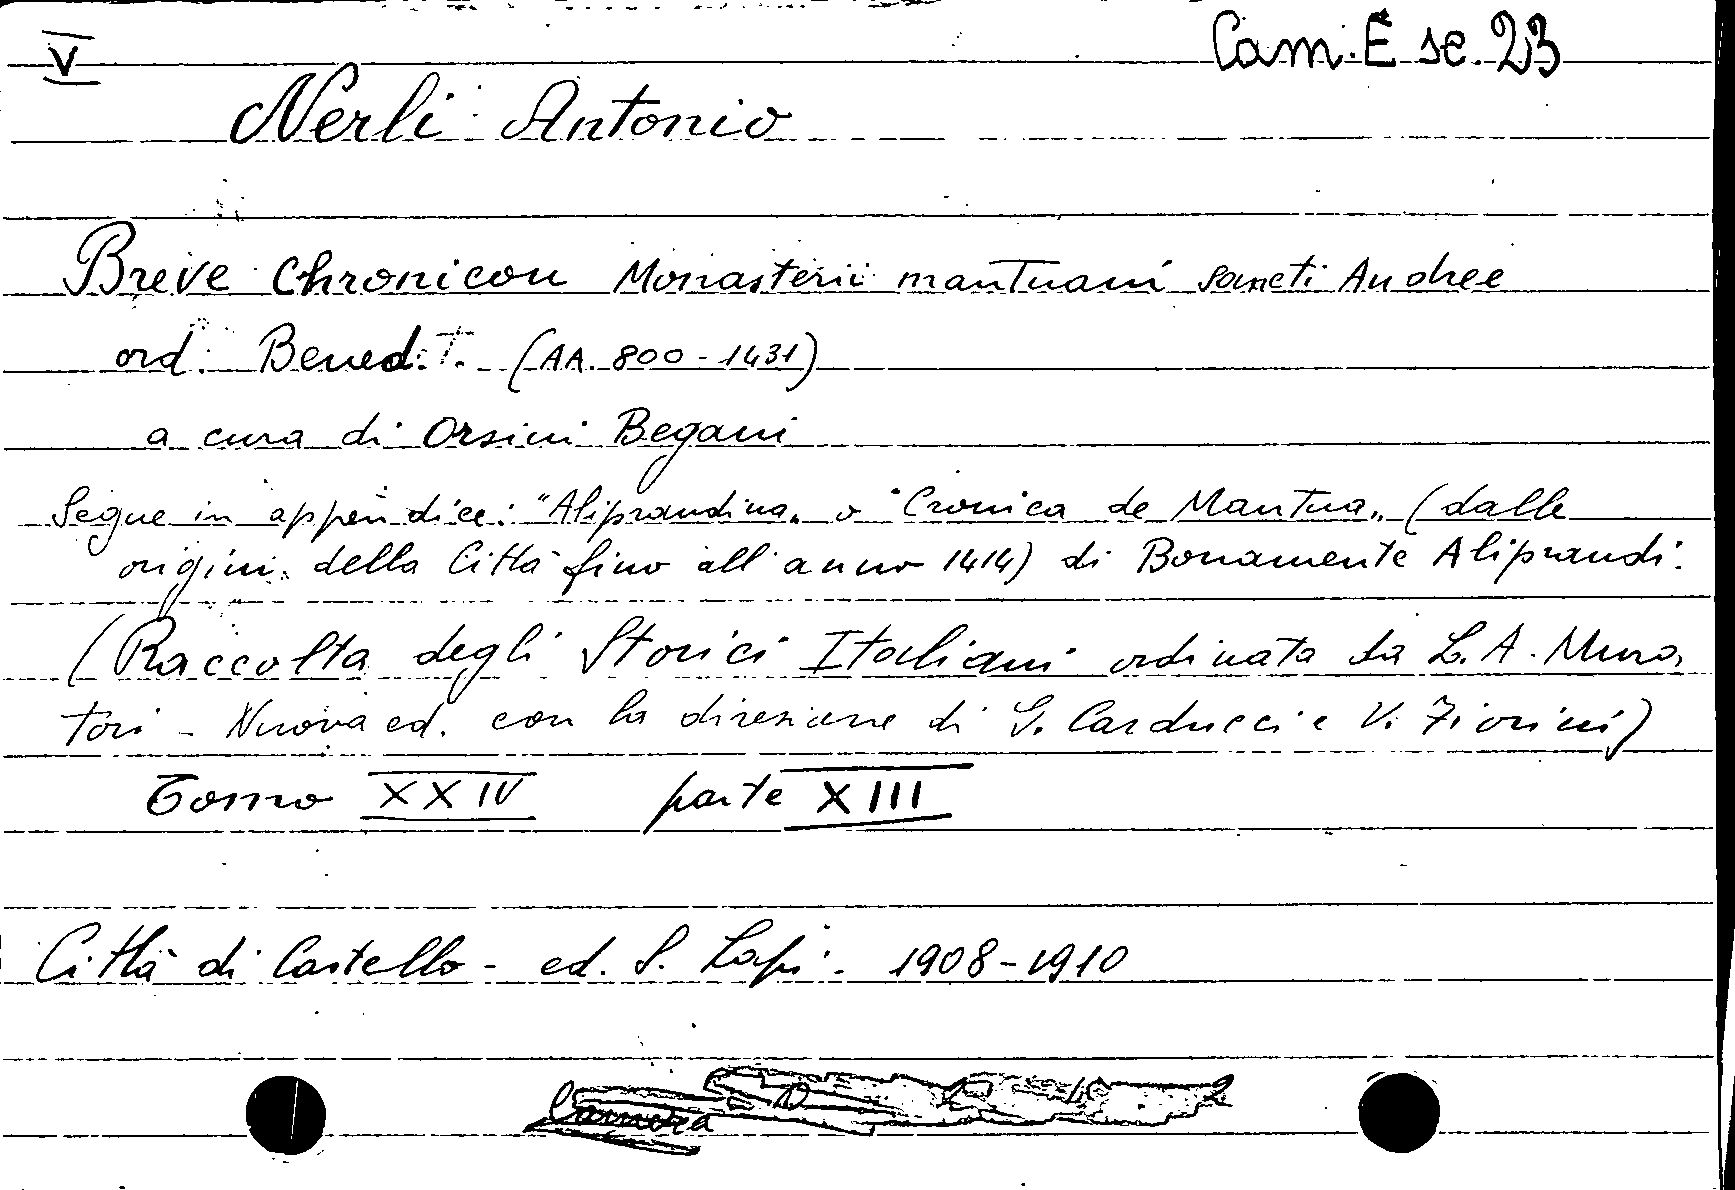 V
Cam. E sc. 23
Nerli Antonio
Breve Chronicon Monasterii mantuani sancti Andree
ord. Bened.T. (AA. 800-1431)
a cura di Orsini Begani
Segue in appendice: "Aliprandina" o "Cronica de Mantua" (dalle
origini della Città fino all'anno 1414) di Bonamente Aliprandi.
(Raccolta degli Storici Italiani ordinata da L.A. Mura
tori - Nuova ed. con la direzione di G. Carducci e V. Fiorini)
Tomo XXIV parte XIII
Città di Castello - ed. S. Lapi - 1908-1910
Camera